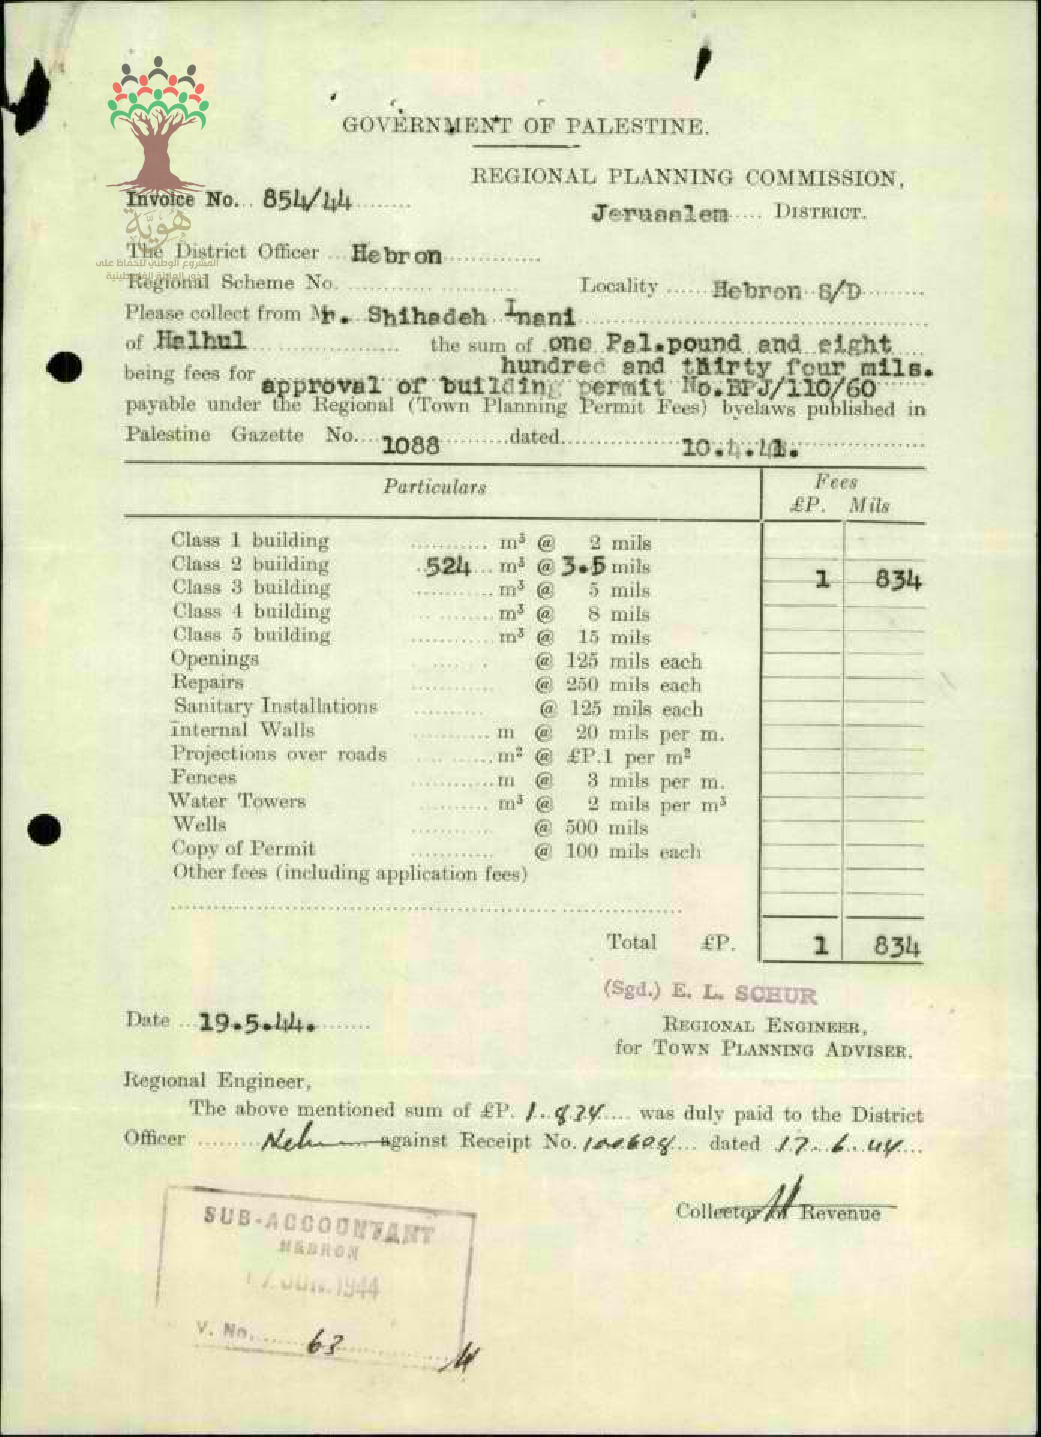 GOVERNMENT OF PALESTINE.
REGIONAL PLANNING COMMISSION,
Invoice No. 854/44
Jerusalem DISTRICT.
هُوِيَّة
المشروع الوطني للحفاظ على
جذور العائلة الفلسطينية
The District Officer Hebron
Regional Scheme No.
Locality Hebron S/D
Please collect from Mr. Shihadeh Inani
of Halhul the sum of one Pal.pound and eight
hundred and thirty four mils.
being fees for approval of building permit No.BPJ/110/60
payable under the Regional (Town Planning Permit Fees) byelaws published in
Palestine Gazette No. 1088 dated 10.4.41.
Particulars Fees
£P. Mils
Class 1 building m³ @ 2 mils
Class 2 building 524 m³ @ 3.5 mils 1 834
Class 3 building m³ @ 5 mils
Class 4 building m³ @ 8 mils
Class 5 building m³ @ 15 mils
Openings @ 125 mils each
Repairs @ 250 mils each
Sanitary Installations @ 125 mils each
Internal Walls m @ 20 mils per m.
Projections over roads m² @ £P.1 per m²
Fences m @ 3 mils per m.
Water Towers m³ @ 2 mils per m³
Wells @ 500 mils
Copy of Permit @ 100 mils each
Other fees (including application fees)
Total £P. 1 834
(Sgd.) E. L. SCHUR
Date 19.5.44.
REGIONAL ENGINEER,
for TOWN PLANNING ADVISER.
Regional Engineer,
The above mentioned sum of £P. 1.834 was duly paid to the District
Officer against Receipt No. 100608 dated 17.6.44
Collector of Revenue
SUB-ACCOUNTANT
HEBRON
17 JUN. 1944
V. No. 63